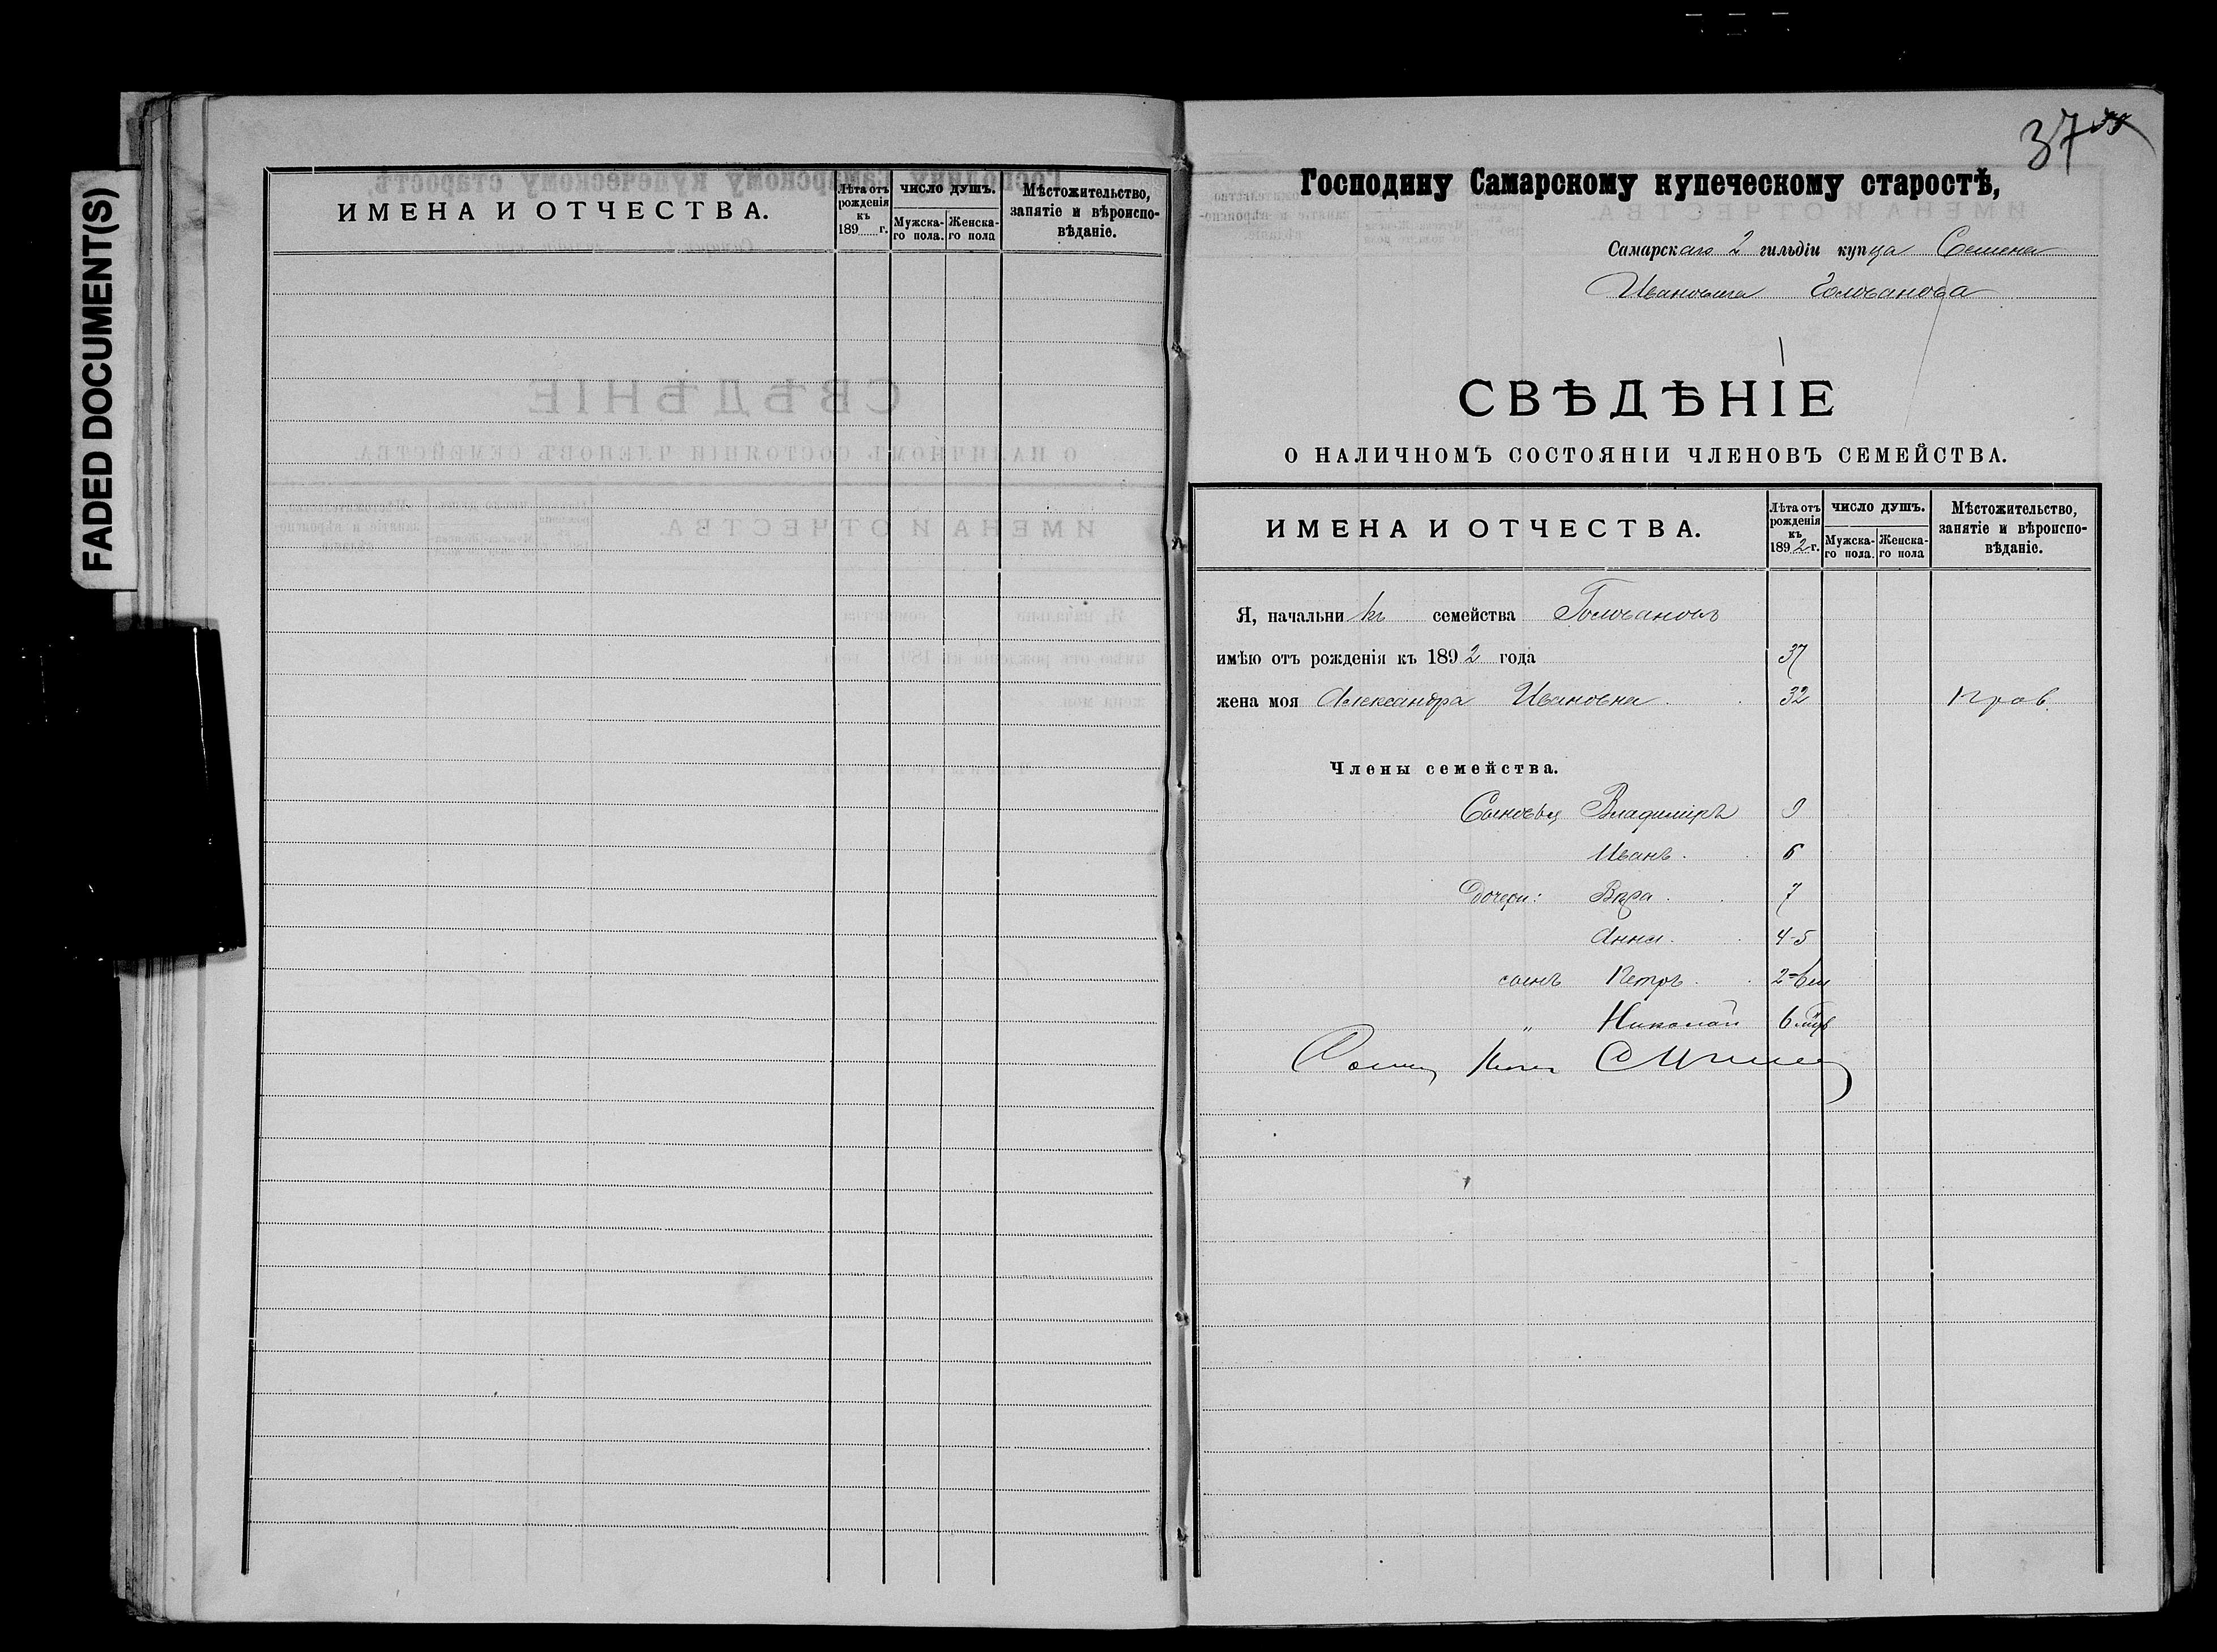 FADED DOCUMENT(S)
ИМЕНА И ОТЧЕСТВА.
Лѣта отъ рожденія къ 189 г.
ЧИСЛО ДУШЪ.
Мужска-го пола.
Женска-го пола
Мѣстожительство, занятіе и вѣроиспо-вѣданіе.
37
Господину Самарскому купеческому старостѣ,
Самарскаго 2 гильдіи купца Семена
Ивановича Голованова
СВѢДѢНІЕ
О НАЛИЧНОМЪ СОСТОЯНІИ ЧЛЕНОВЪ СЕМЕЙСТВА.
ИМЕНА И ОТЧЕСТВА.
Лѣта отъ рожденія къ 1892 г.
ЧИСЛО ДУШЪ.
Мужска-го пола.
Женска-го пола
Мѣстожительство, занятіе и вѣроиспо-вѣданіе.
Я, начальникъ семейства Головановъ
имѣю отъ рожденія къ 1892 года 37
жена моя Александра Ивановна 32 Прав.
Члены семейства.
Сыновья Владиміръ 9
Иванъ 6
Дочери: Вѣра 7
Анна 4-5
сынъ Петръ
„ Николай 6